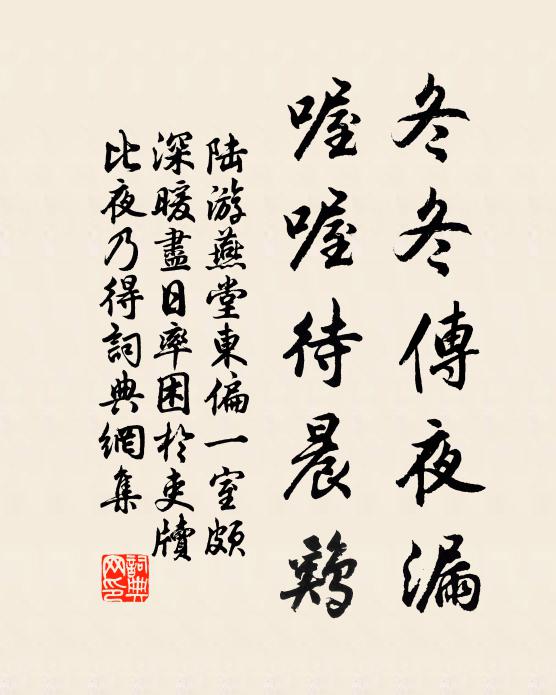 冬冬傳夜漏
喔喔待晨鷄
陆游燕堂東偏一室頗
深暖盡日率困於吏牘
比夜乃得詞典網集
詞典
网印